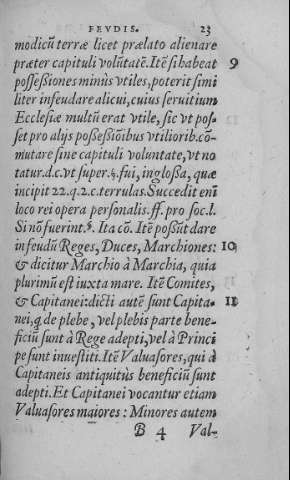 FEVDIS. 23
modicũ terræ licet prælato alienare
præter capituli volũtatẽ. Itẽ si habeat 9
possessiones minùs vtiles, poterit simi
liter infeudare alicui, cuius seruitium
Ecclesiæ multũ erat vtile, sic vt pos-
set pro alijs possessiõibus vtiliorib. cõ-
mutare sine capituli voluntate, vt no
tatur. d. c. vt super. §. fui, in glossa, quæ
incipit 22. q. 2. c. terrulas. Succedit eni
loco rei opera personalis. ff. pro soc. l.
Si nõ fuerint. §. Ita cõ. Itẽ possũt dare
in feudũ Reges, Duces, Marchiones: 10
& dicitur Marchio à Marchia, quia
plurimũ est iuxta mare. Itẽ Comites,
& Capitanei: dicti autẽ sunt Capita- 11
nei, q̃ de plebe, vel plebis parte bene-
ficiũ sunt à Rege adepti, vel à Princi
pe sunt inuestiti. Itẽ Valuasores, qui à
Capitaneis antiquitùs beneficiũ sunt
adepti. Et Capitanei vocantur etiam
Valuasores maiores: Minores autem
B 4 Val-